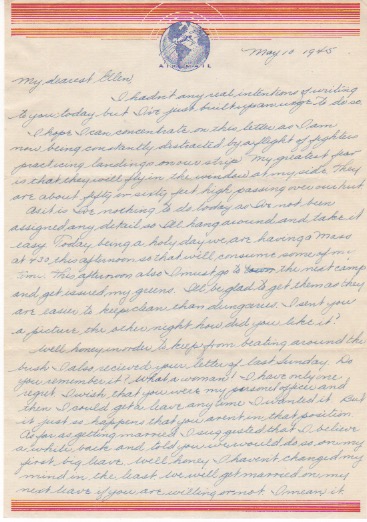 AIR MAIL
May 10 1945
My dearest Ellen,
I hadn't any real intentions of writing
to you today but I've just built up an urge to do so.
I hope I can concentrate on this letter as I am
now being constantly distracted by a flight of fighters
practicing landings on our strip. My greatest fear
is that they will fly in the window at my side. They
are about fifty or sixty feet high passing over our hut
As it is I've nothing to do today as I've not been
assigned any detail so I'll hang around and take it
easy. Today being a holy day we are having Mass
at 4:30 this afternoon so that will consume some of my
time. This afternoon also I must go to the next camp
and get issued my greens. I'll be glad to get them as they
are easier to keep clean than dungarees. I sent you
a picture the other night how did you like it?
Well honey in order to keep from beating around the
bush I also recieved your letter of last Sunday. Do
you remember it? What a woman! I have only one
regret I wish that you were my personel officer and
then I could get a leave any time I wanted it. But
it just so happens that you aren't in that position.
As far as getting married I suggested that I believe
a while back and told you we would do so on my
first big leave. Well honey I haven't changed my
mind in the least we will get married on my
next leave if you are willing or not. I mean it